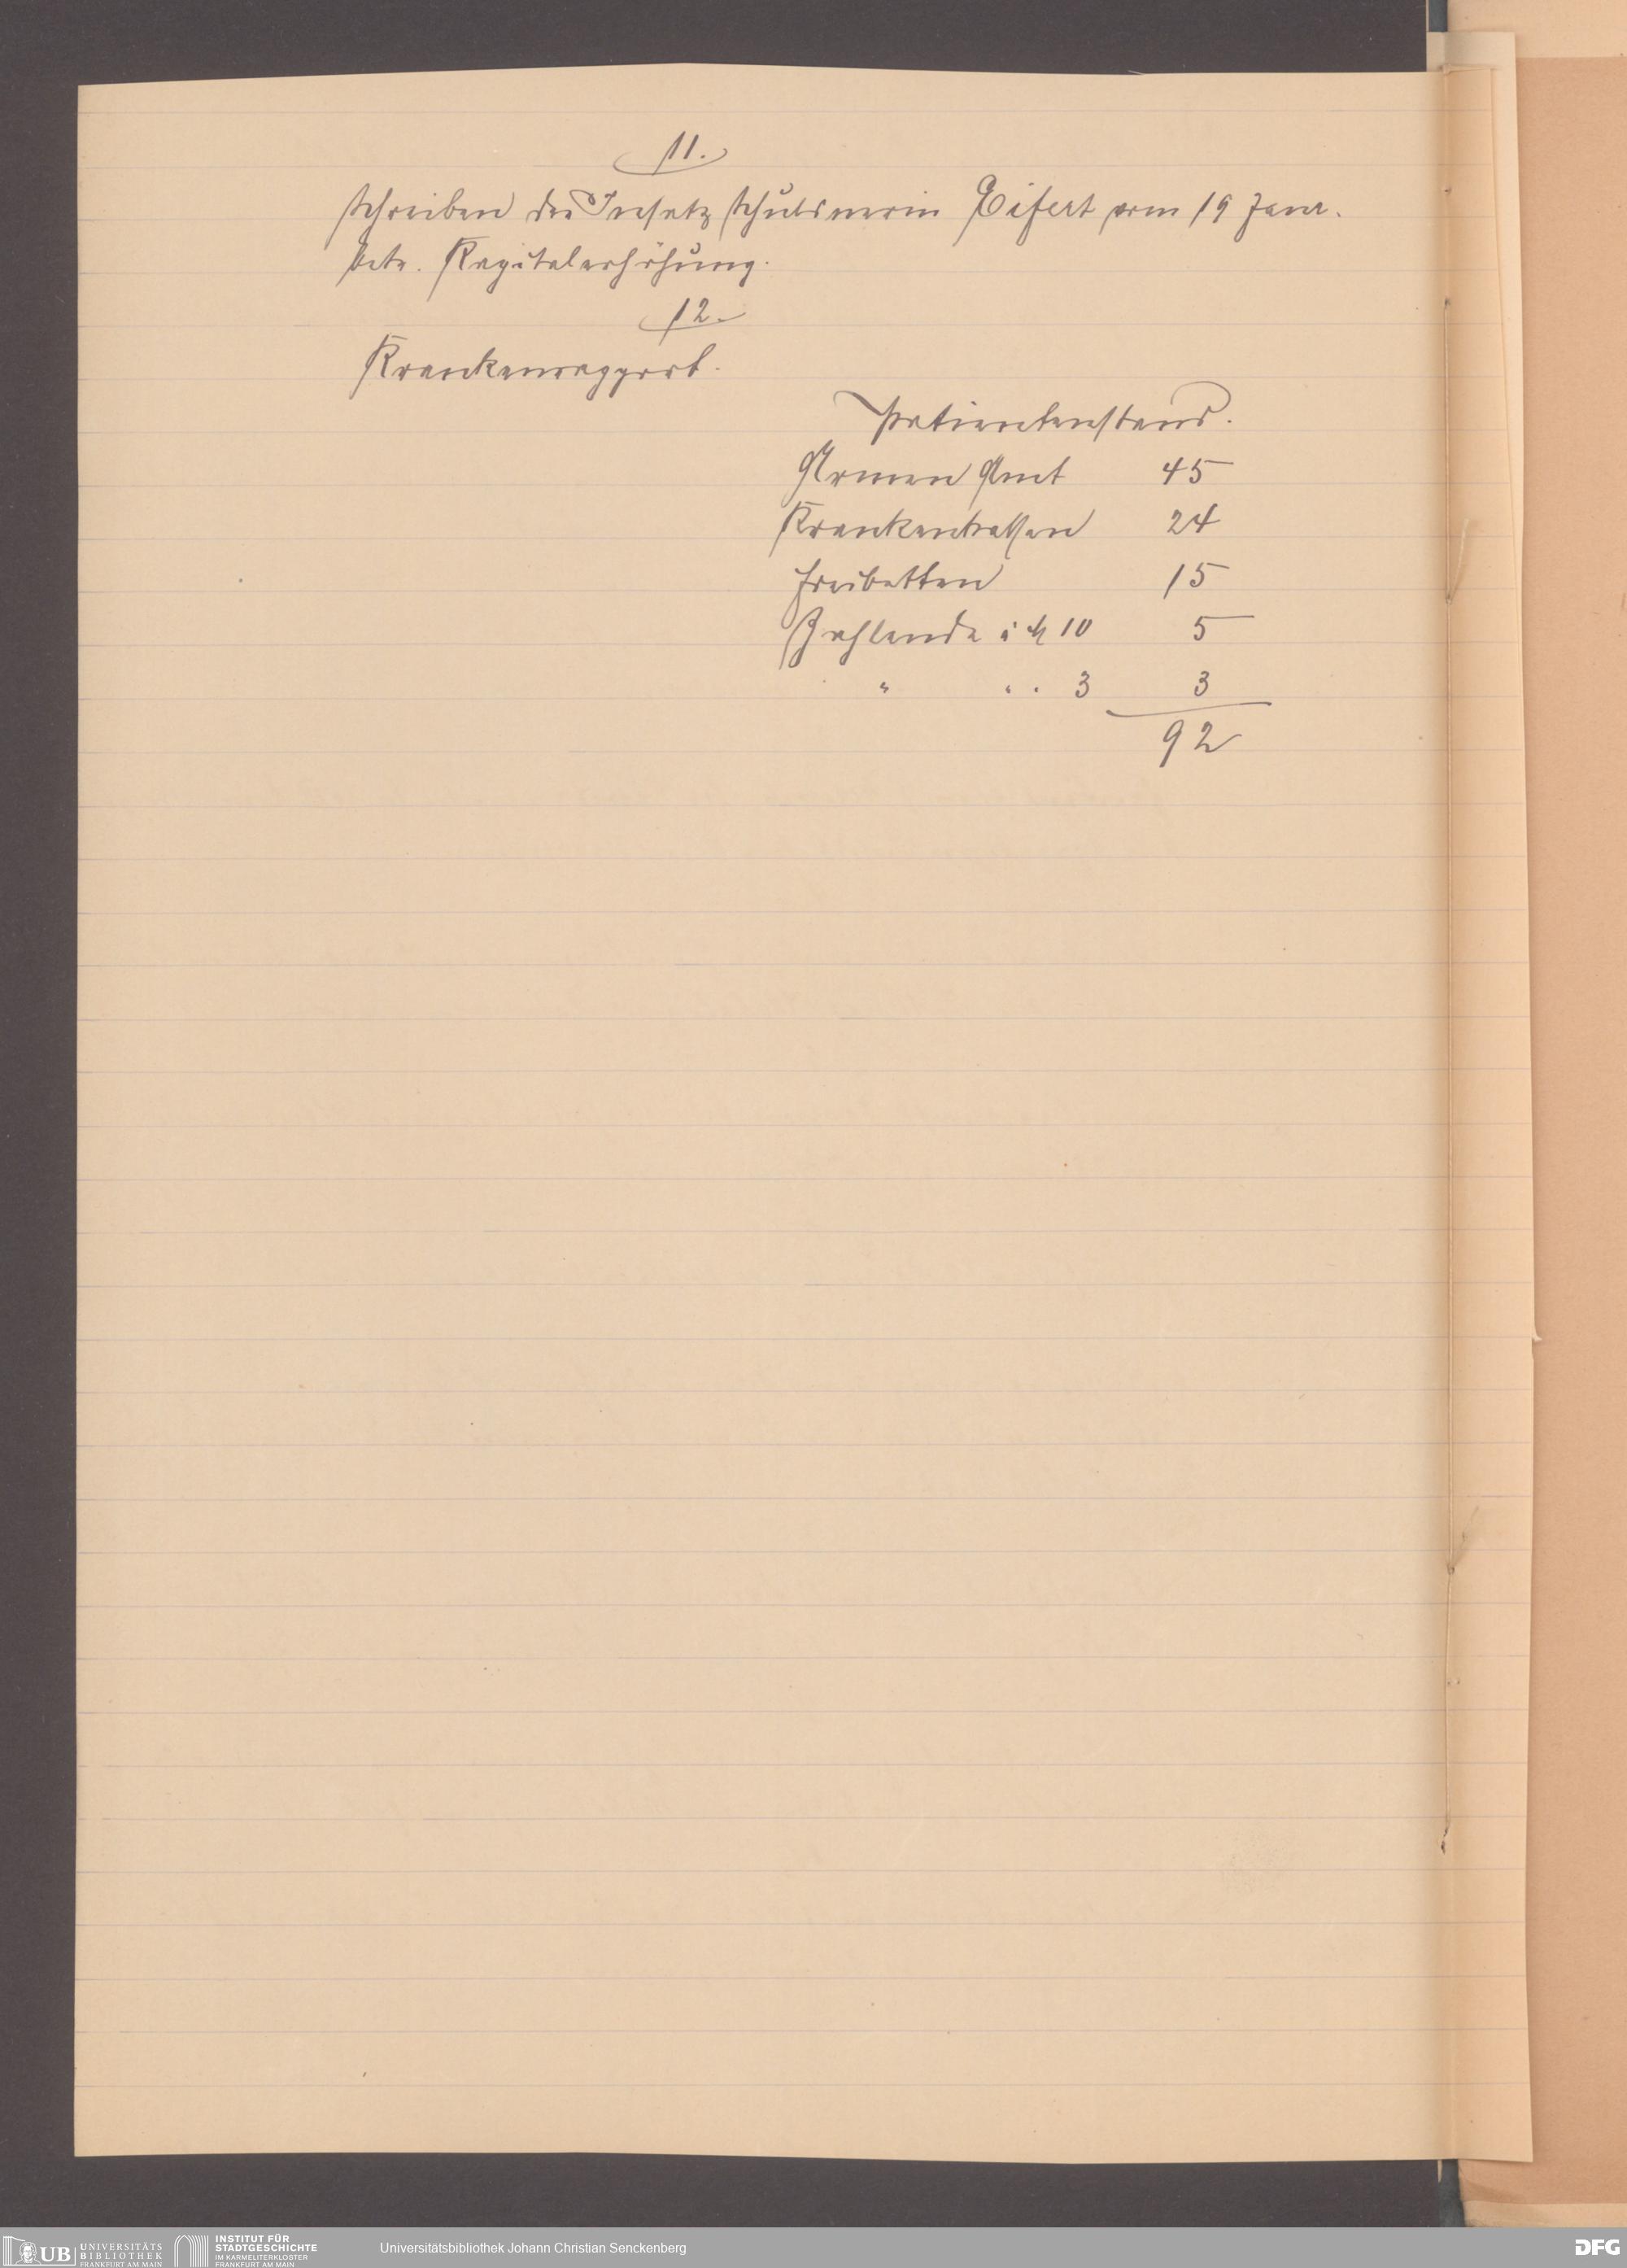 11.
Schreiben der Insatz Schuldnerin Eifert vom 19 Janr.
betr. Kapitalerhöhung.
12.
Krankenrapport.
Patientenstand.
Armen Amt 45
Krankenkassen 24
Freibetten 15
Zahlende à M 10 5
" " " 3 3
92
UB UNIVERSITÄTS BIBLIOTHEK FRANKFURT AM MAIN
INSTITUT FÜR STADTGESCHICHTE IM KARMELITERKLOSTER FRANKFURT AM MAIN
Universitätsbibliothek Johann Christian Senckenberg
DFG